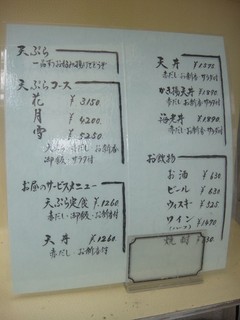 天ぷら
一品ずつお好み揚げにてどうぞ
天ぷらコース
花 ¥3150
月 ¥4200
雪 ¥5250
天ぷら 赤だし お新香
御飯 サラダ付
お昼のサービスメニュー
天ぷら定食 ¥1260
赤だし・御飯・お新香付
天丼 ¥1260
赤だし・お新香付
天丼
赤だし お新香 サラダ付
かき揚天丼 ¥1890
赤だし お新香 サラダ付
海老丼 ¥1890
赤だし お新香 サラダ付
お飲物
お酒 ¥630
ビール ¥631
ウィスキー ¥525
ワイン
焼酎